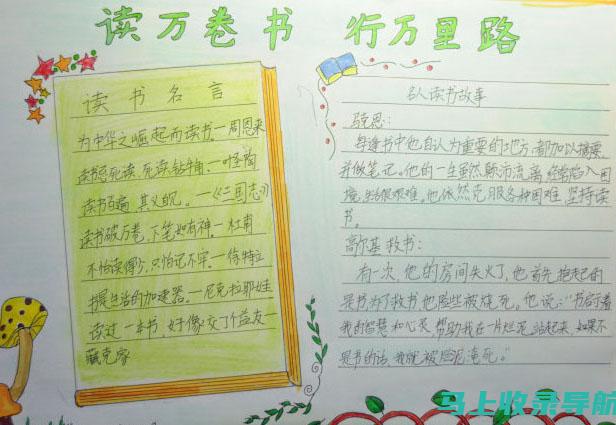 读万卷书 行万里路
读书名言
为中华之崛起而读书。一周恩来
读书忌死读,死读钻牛角。一叶圣陶
读书百遍,其义自见。—《三国志》
读书破万卷,下笔如有神。一杜甫
不怕读得少,只怕记不牢。一徐特立
提生活的加速器。一尼克拉耶娃
读过一本书,好像交了个益友一
臧克家
名人读书故事
马克思:
每逢书中他自认为重要的地方,都加以摘要,
并做笔记。他的一生虽然颠沛流离,经常陷入困
境,生活很艰难,也依然克服各种困难,坚持读
书。
高尔基救书:
有一次,他的房间失火了,他首先抱起的
是书,为了救书他险些被烧死。他说:"书启示着
我的智慧和心灵,帮助我在一片烂泥站起来,如果不
是书的话,我就被烂泥淹死。"
马上收录导航